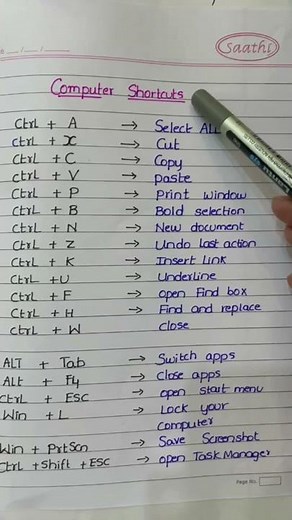 Saathi
Computer Shortcuts
Ctrl + A → Select ALL
ctrl + X → Cut
Ctrl + C → Copy
ctrl + V → paste
Ctrl + P → Print window
Ctrl + B → Bold selection
Ctrl + N → New document
Ctrl + Z → Undo last action
Ctrl + K → Insert link
Ctrl + U → Underline
Ctrl + F → open Find box
Ctrl + H → Find and replace
Ctrl + W close
ALT + Tab → Switch apps
Alt + F4 → close apps
Ctrl + ESC → open start menu
Win + L → Lock your
computer
Win + PrtScn → Save Screenshot
Ctrl + Shift + ESC → open Task Manager
Page No.